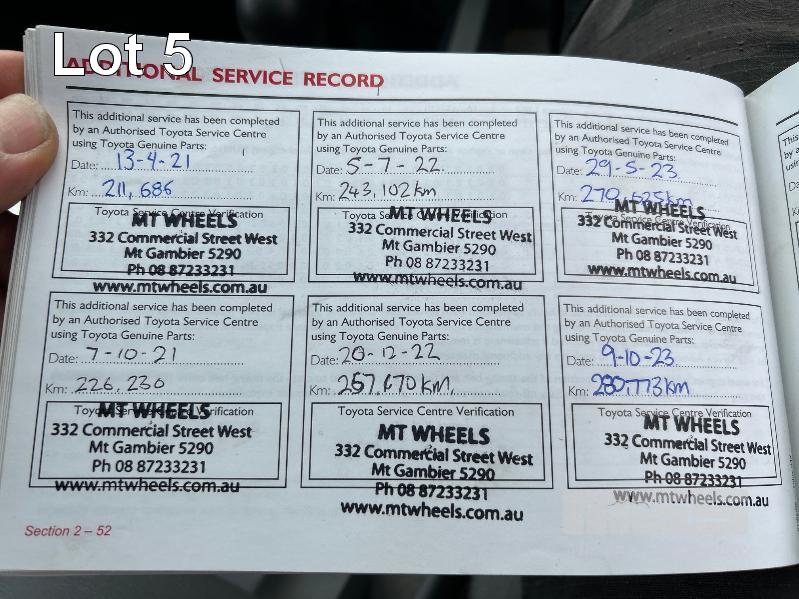 Lot 5
ADDITIONAL SERVICE RECORD
This additional service has been completed
by an Authorised Toyota Service Centre
using Toyota Genuine Parts:
Date: 13-4-21
Km: 211,686
Toyota Service Centre Verification
MT WHEELS
332 Commercial Street West
Mt Gambier 5290
Ph 08 87233231
www.mtwheels.com.au
This additional service has been completed
by an Authorised Toyota Service Centre
using Toyota Genuine Parts:
Date: 5-7-22
Km: 243,102km
Toyota Service Centre Verification
MT WHEELS
332 Commercial Street West
Mt Gambier 5290
Ph 08 87233231
www.mtwheels.com.au
This additional service has been completed
by an Authorised Toyota Service Centre
using Toyota Genuine Parts:
Date: 29-5-23
Km: 270,625km
Toyota Service Centre Verification
MT WHEELS
332 Commercial Street West
Mt Gambier 5290
Ph 08 87233231
www.mtwheels.com.au
This additional service has been completed
by an Authorised Toyota Service Centre
using Toyota Genuine Parts:
Date: 7-10-21
Km: 226,230
Toyota Service Centre Verification
MT WHEELS
332 Commercial Street West
Mt Gambier 5290
Ph 08 87233231
www.mtwheels.com.au
This additional service has been completed
by an Authorised Toyota Service Centre
using Toyota Genuine Parts:
Date: 20-12-22
Km: 257,670km,
Toyota Service Centre Verification
MT WHEELS
332 Commercial Street West
Mt Gambier 5290
Ph 08 87233231
www.mtwheels.com.au
This additional service has been completed
by an Authorised Toyota Service Centre
using Toyota Genuine Parts:
Date: 9-10-23
Km: 280,773km
Toyota Service Centre Verification
MT WHEELS
332 Commercial Street West
Mt Gambier 5290
Ph 08 87233231
www.mtwheels.com.au
Section 2 – 52